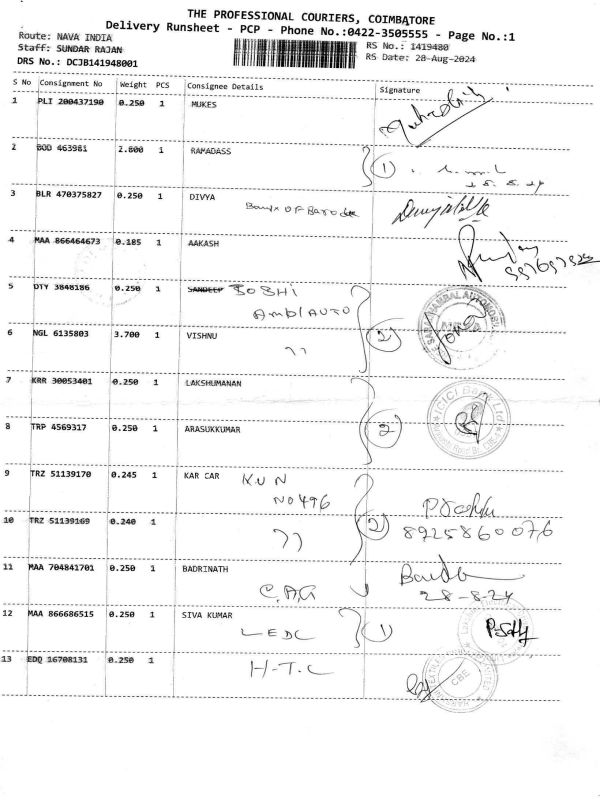 THE PROFESSIONAL COURIERS, COIMBATORE
Delivery Runsheet - PCP - Phone No.:0422-3505555 - Page No.:1
Route: NAVA INDIA
RS No.: I419480
Staff: SUNDAR RAJAN
RS Date: 28-Aug-2024
DRS No.: DCJB141948001
S No Consignment No Weight PCS Consignee Details Signature
1 PLI 200437190 0.250 1 MUKES
2 BOD 463981 2.800 1 RAMADASS 1
3 BLR 470375827 0.250 1 DIVYA
Bank OF Baroda
4 MAA 866464673 0.185 1 AAKASH
5 OTY 3848186 0.250 1 SANDEEP JOSHI
Ambl AUTO
6 NGL 6135803 3.700 1 VISHNU 2
77
7 KRR 30053401 0.250 1 LAKSHUMANAN
ICICI Bank Ltd
8 TRP 4569317 0.250 1 ARASUKKUMAR 2
9 TRZ 51139170 0.245 1 KAR CAR KUN
NO 496
10 TRZ 51139169 0.240 1 2 8925860076
77
11 MAA 704841701 0.250 1 BADRINATH
C.AG 28-8-24
12 MAA 866686515 0.250 1 SIVA KUMAR
LEDC 1
13 EDQ 16708131 0.250 1 H-T-C
CBE